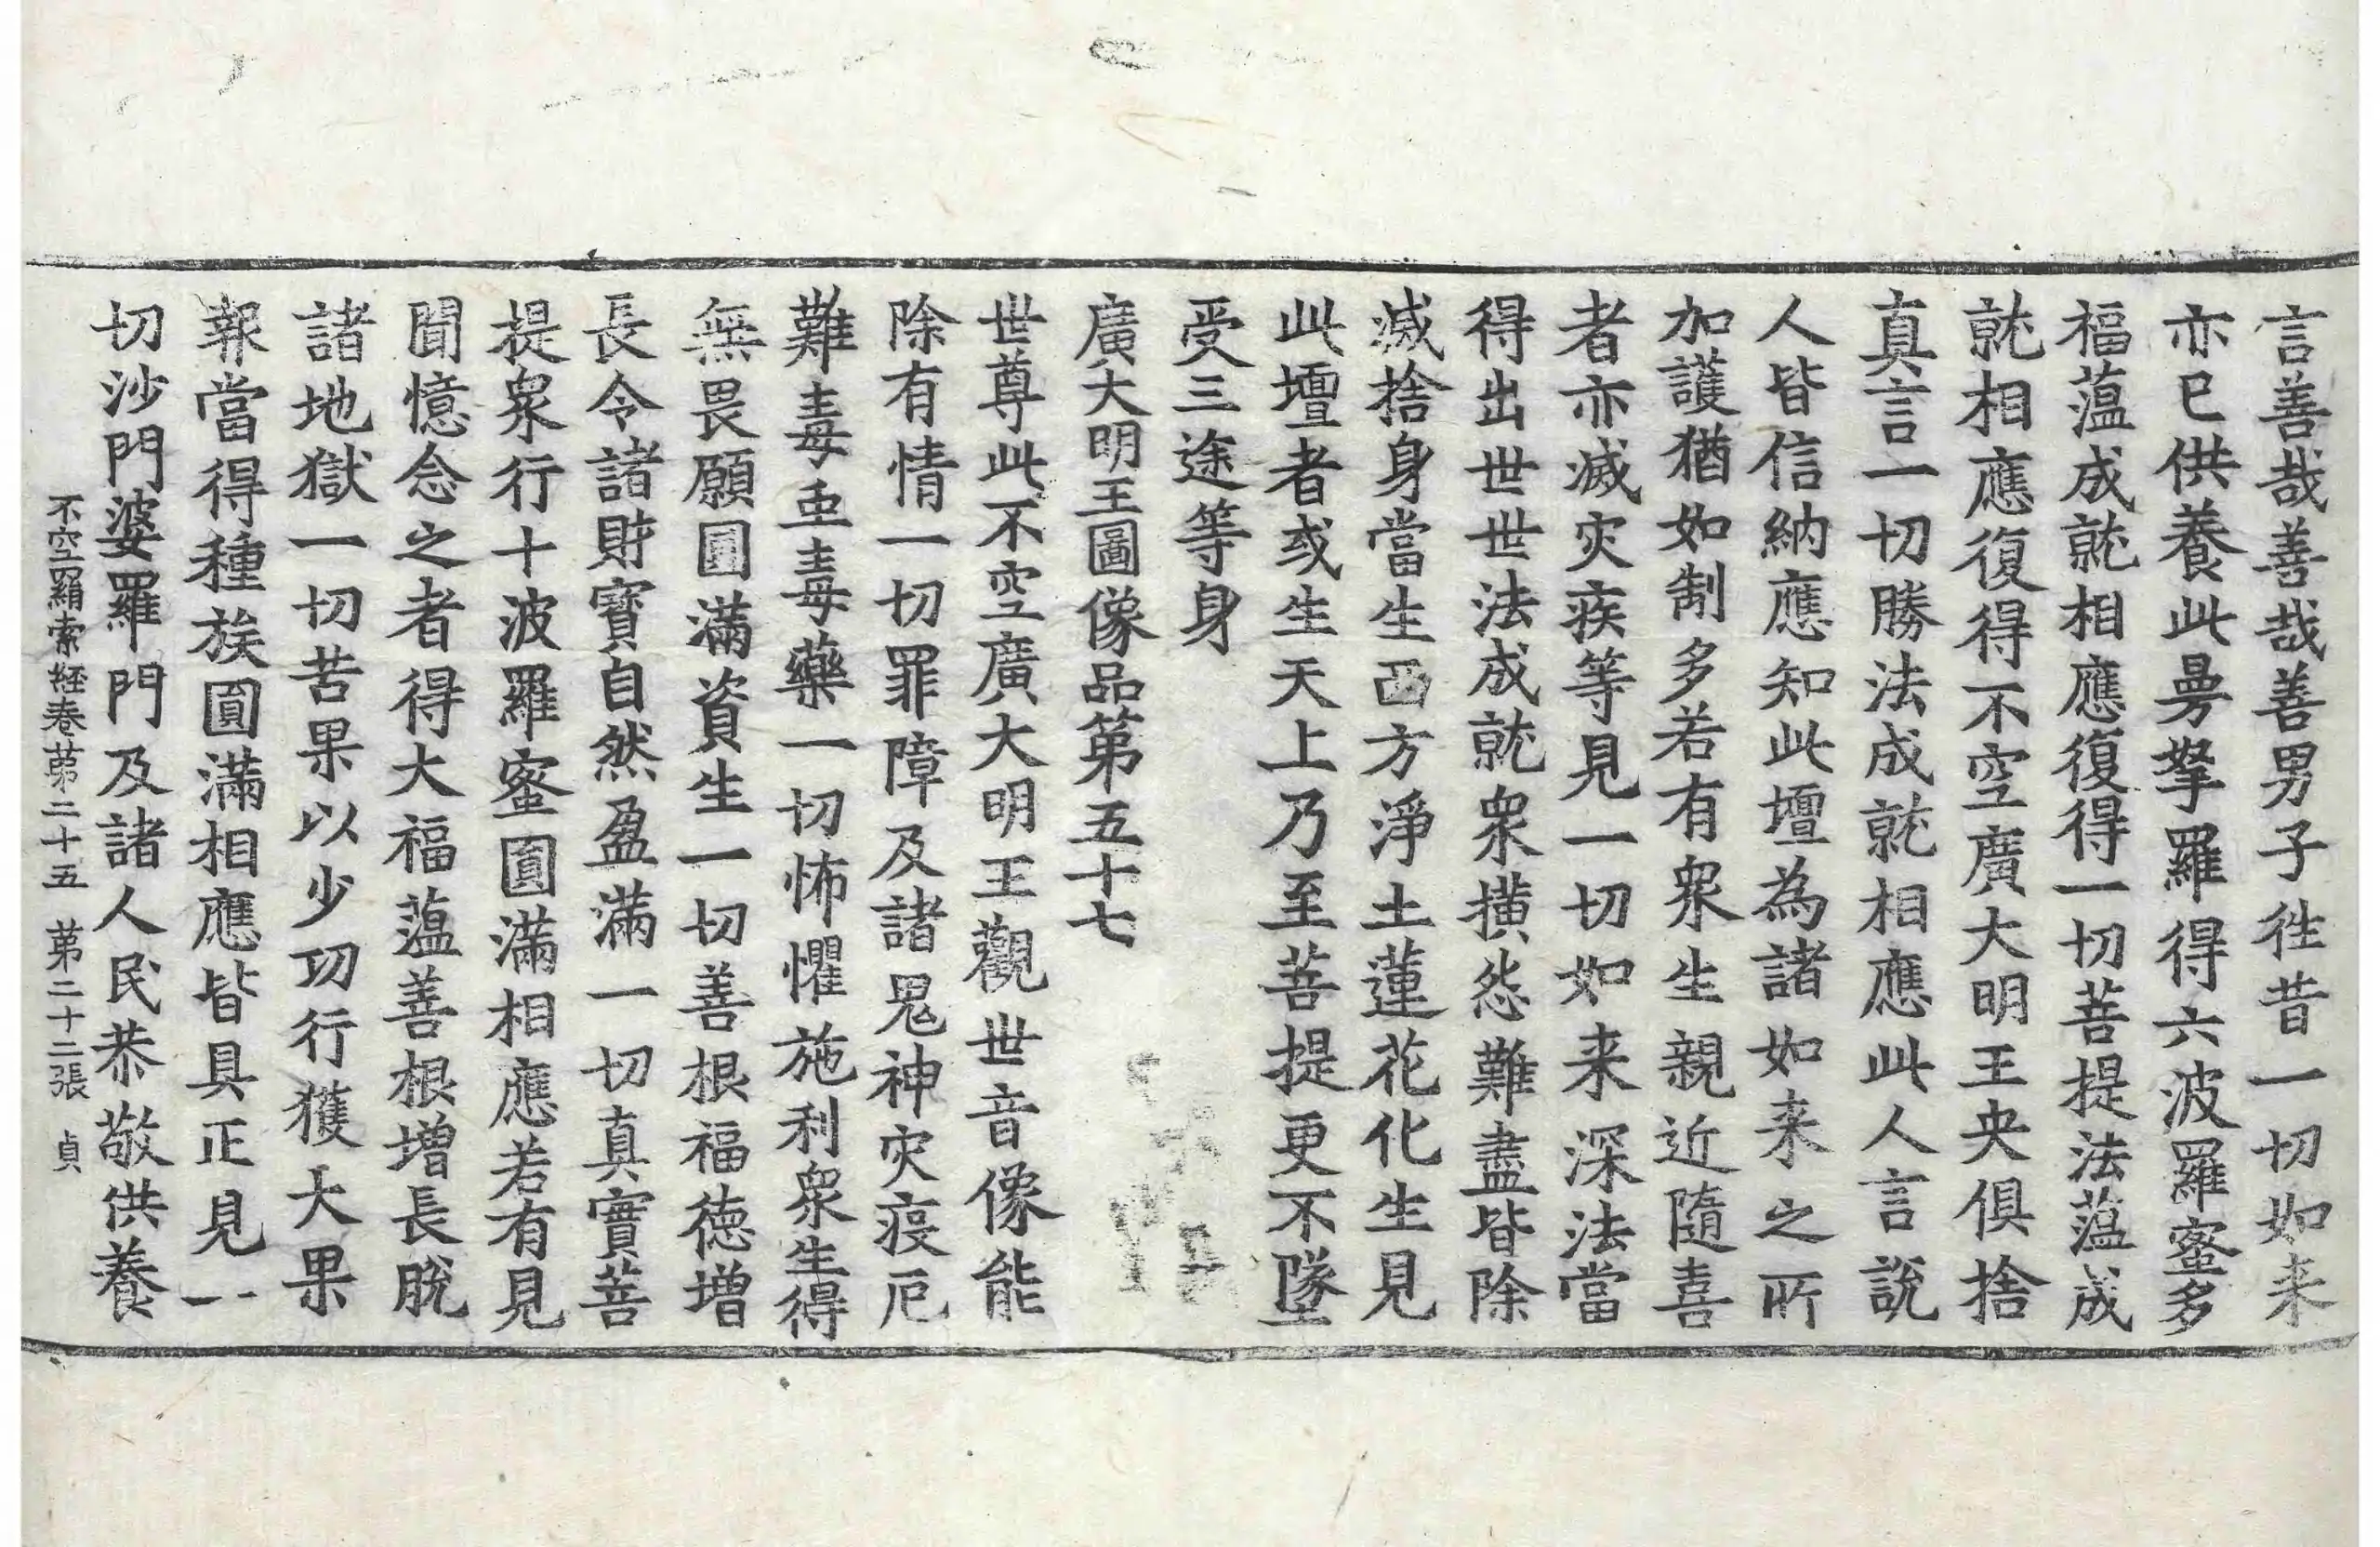 言善哉善哉善男子徃昔一切如来
亦已供養此曼拏羅得六波羅蜜多
福蕰成就相應復得一切菩提法蕰成
就相應復得不空廣大明王央俱捨
真言一切勝法成就相應此人言說
人皆信納應知此壇為諸如来之所
加護猶如制多若有衆生親近隨喜
者亦滅灾疾等見一切如来深法當
得出世世法成就衆横怨難盡皆除
滅捨身當生西方淨土蓮花化生見
此壇者或生天上乃至菩提更不墜
受三途等身
廣大明王圖像品第五十七
世尊此不空廣大明王觀世音像能
除有情一切罪障及諸鬼神灾疫厄
難毒䖝毒藥一切怖懼施利衆生得
無畏願圓滿資生一切善根福德增
長令諸財寶自然盈滿一切真實菩
提衆行十波羅蜜圓滿相應若有見
聞憶念之者得大福蕰善根增長脫
諸地獄一切苦果以少功行獲大果
報當得種族圓滿相應皆具正見一
切沙門婆羅門及諸人民恭敬供養
不空羂索経卷第二十五　第二十二張　貞